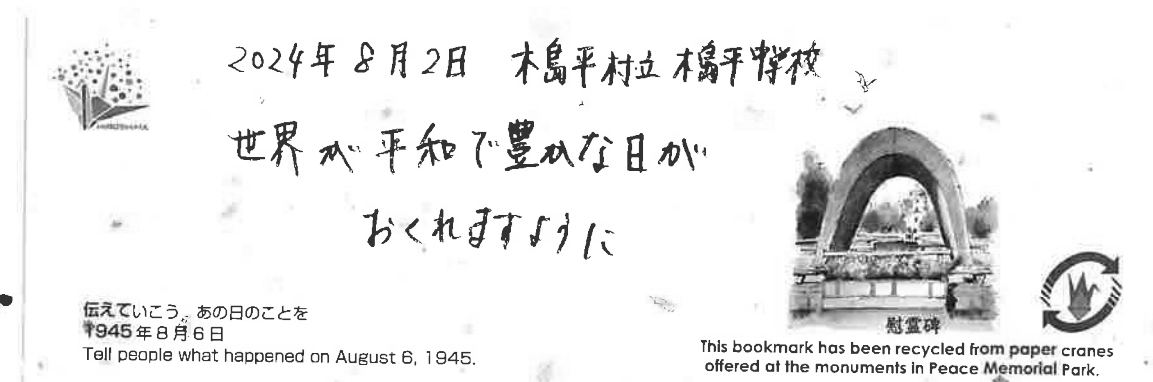 2024年8月2日 木島平村立木島平中学校
世界が平和で豊かな日が
おくれますように
伝えていこう。あの日のことを
1945年8月6日
Tell people what happened on August 6, 1945.
慰霊碑
This bookmark has been recycled from paper cranes
offered at the monuments in Peace Memorial Park.